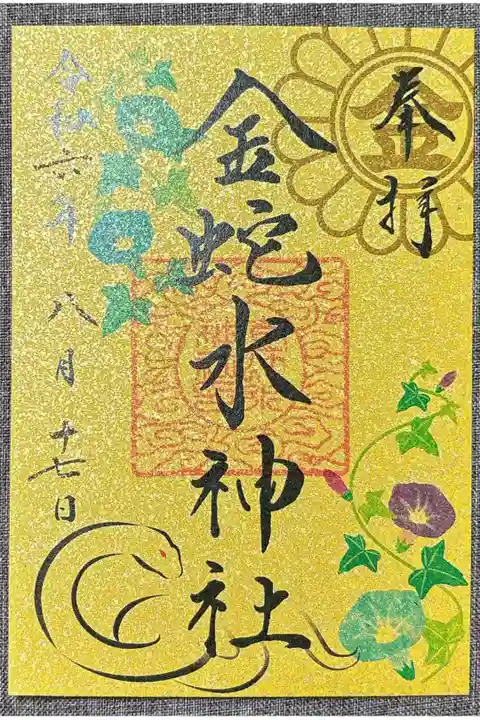 奉拝
金
金蛇水神社
令和六年 八月十七日